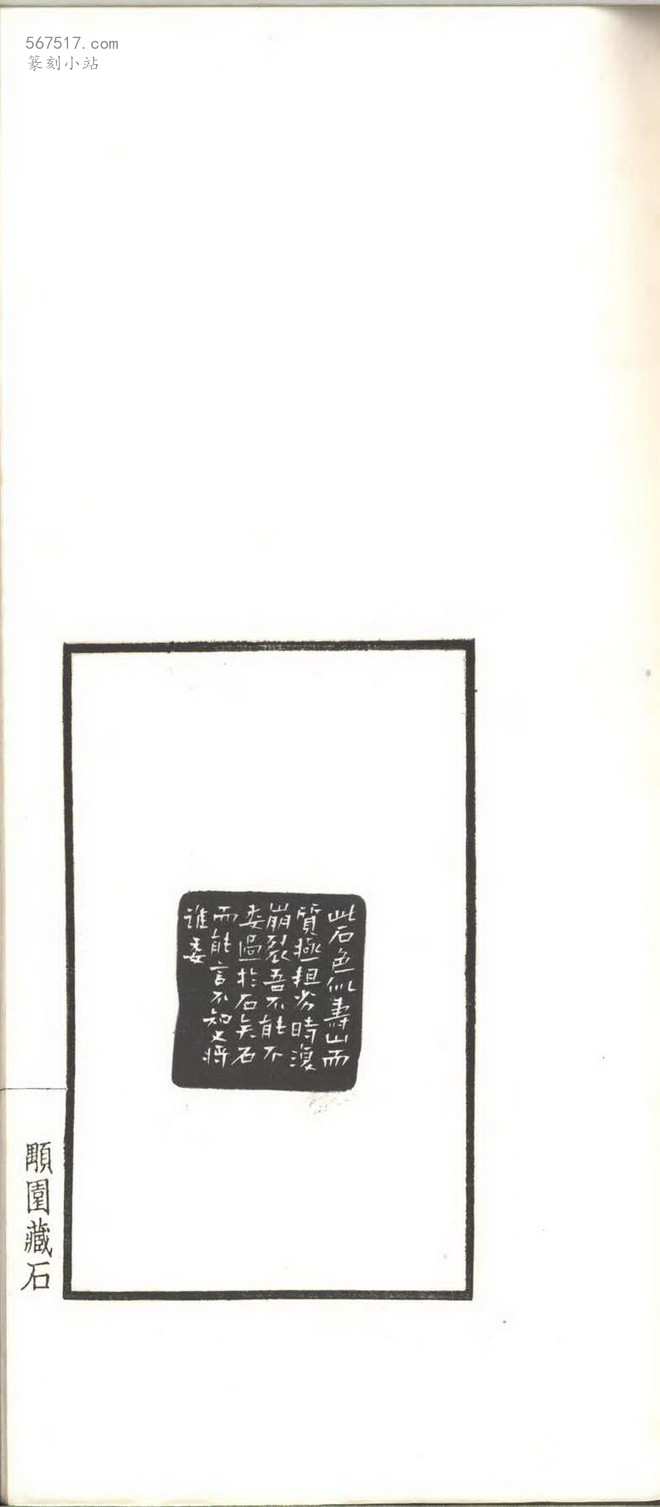 567517.com
篆刻小站
此石色似壽山而
質極粗劣時復
崩裂吾不能不
委過於石矣石
而能言不知又將
誰委
顒園藏石